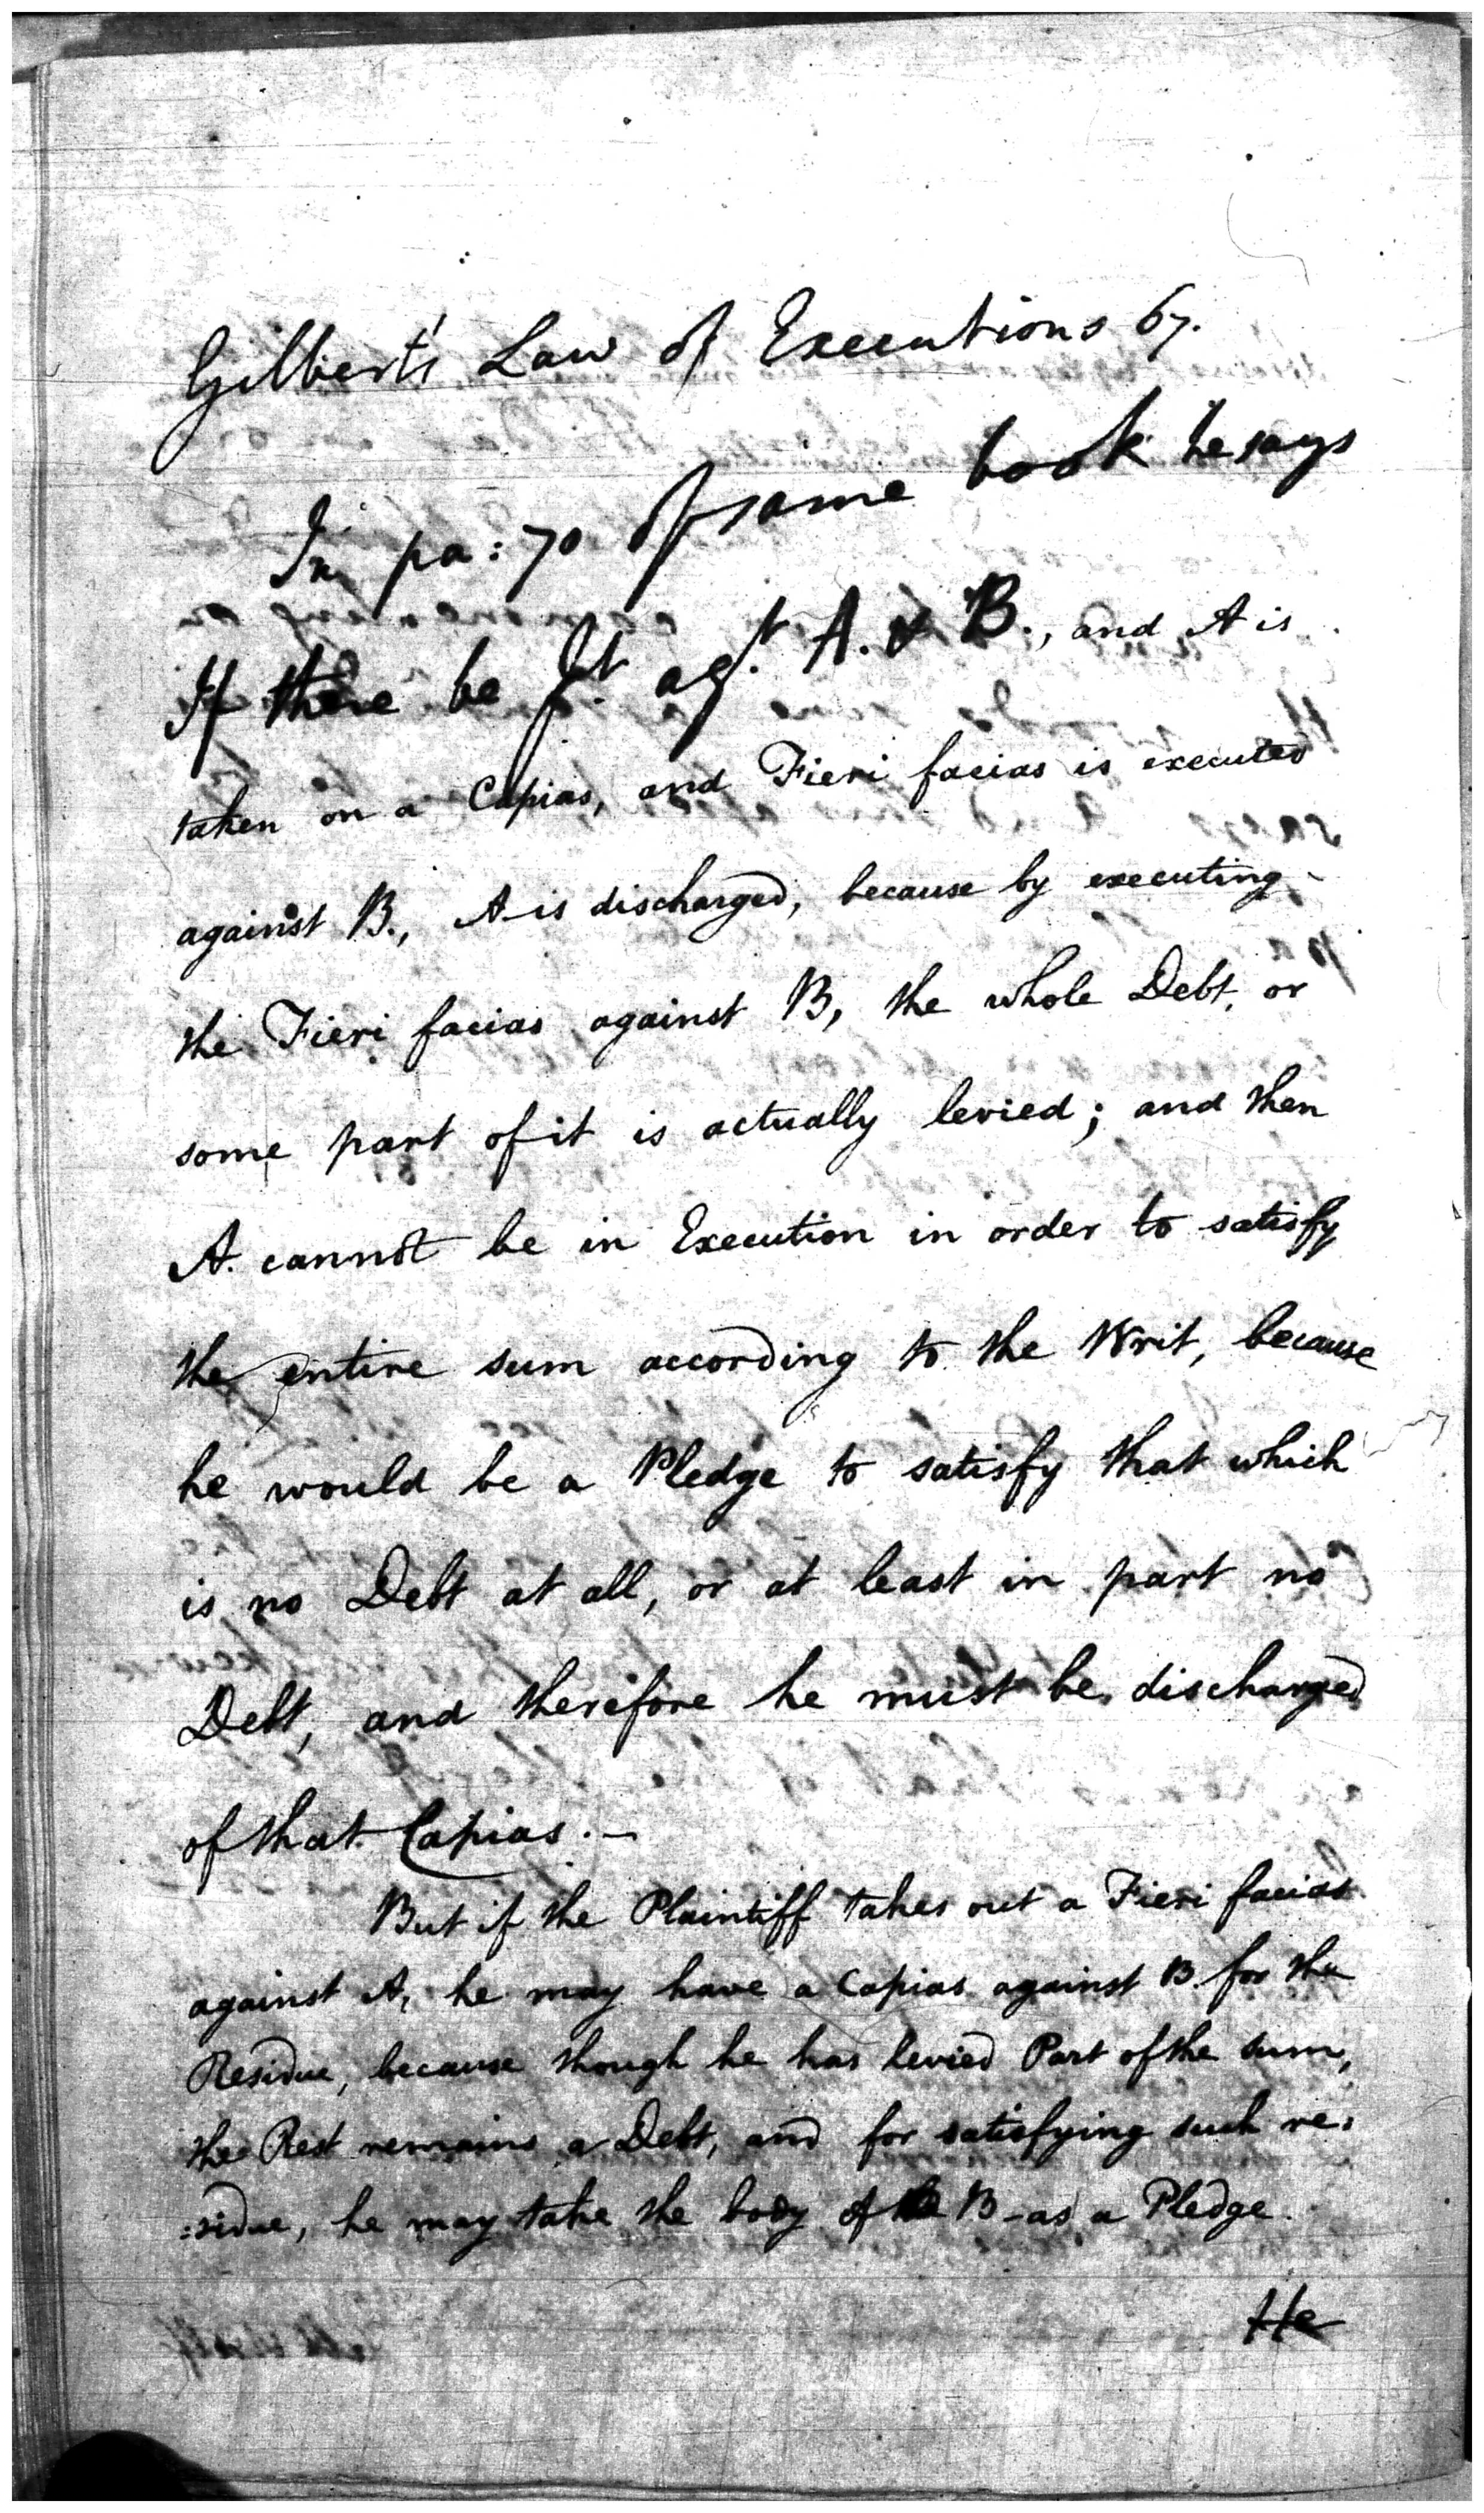 Gilbert's Law of Executions 67.
In pa: 70 of same book he says
If there be Jt. agt. A. & B., and A is
taken on a Capias, and Fieri facias is executed
against B., A is discharged, because by executing
the Fieri facias against B, the whole Debt, or
some part of it is actually levied; and then
A. cannot be in Execution in order to satisfy
the entire sum according to the Writ, because
he would be a Pledge to satisfy that which
is no Debt at all, or at least in part no
Debt, and therefore he must be discharged
of that Capias.—
But if the Plaintiff takes out a Fieri facias
against A, he may have a Capias against B for the
Residue, because though he has levied Part of the sum,
the Rest remains a Debt, and for satisfying such re:
:sidue, he may take the body of B as a Pledge.
He